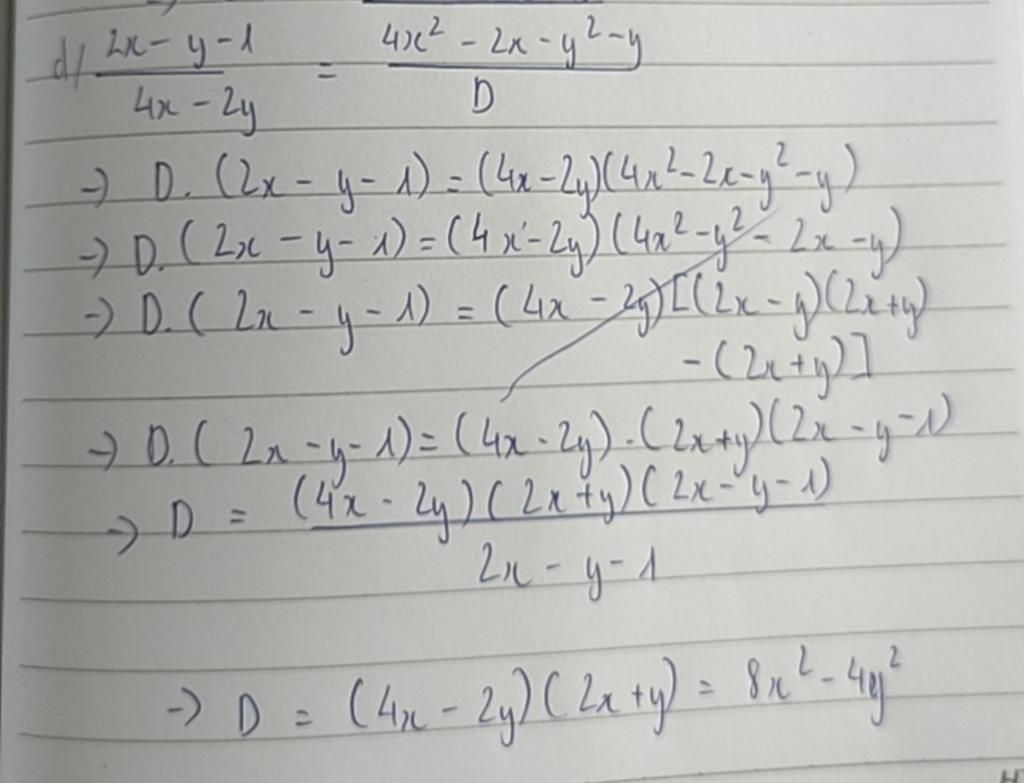 d/ (2x - y - 1)/(4x - 2y) = (4x² - 2x - y² - y)/D
→ D. (2x - y - 1) = (4x - 2y)(4x² - 2x - y² - y)
→ D. (2x - y - 1) = (4x - 2y)(4x² - y² - 2x - y)
→ D. (2x - y - 1) = (4x - 2y)[(2x - y)(2x + y)
- (2x + y)]
→ D. (2x - y - 1) = (4x - 2y).(2x + y)(2x - y - 1)
→ D = (4x - 2y)(2x + y)(2x - y - 1)
2x - y - 1
→ D = (4x - 2y)(2x + y) = 8x² - 4y²